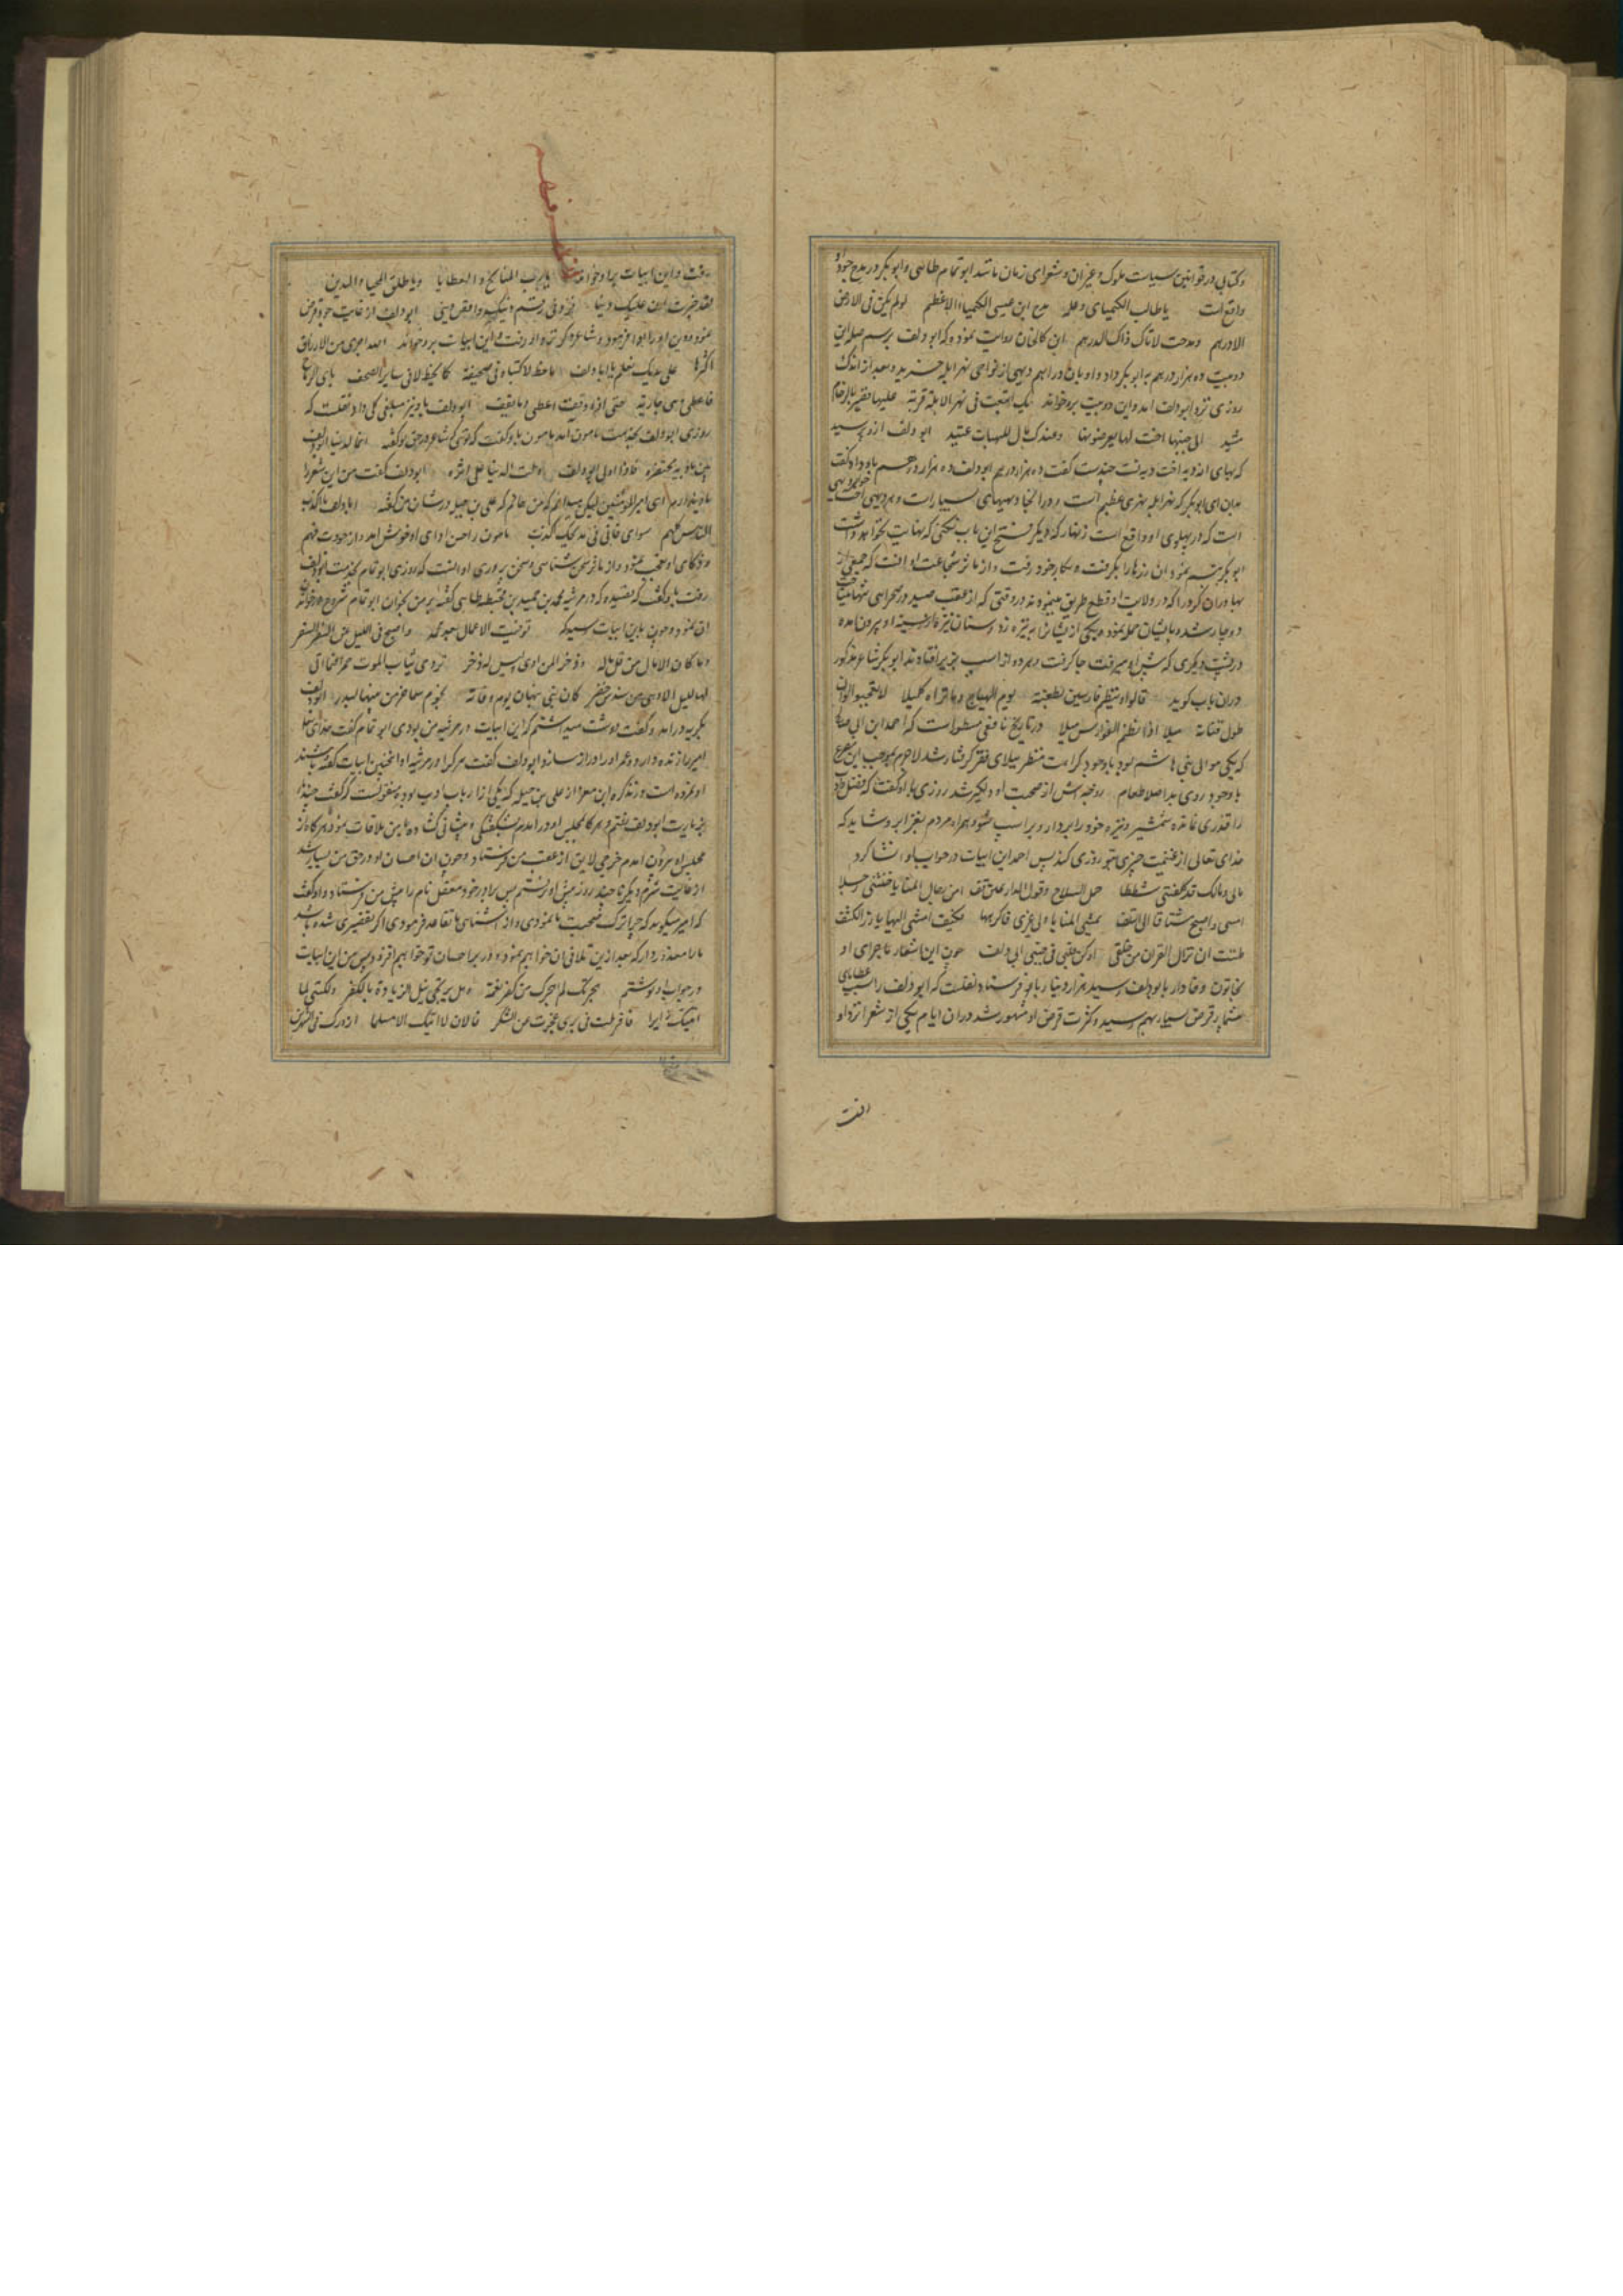 وکتابی در قوانین سیاست ملوک و غیر ان و شعرای زمان مانند ابو تمام طائی و ابو بکر در مدح جود او
واقع است یا طالب الکیمیای وعلمه مدح ابن عیسی الکیمیاء الاعظم لو لم یکن فی الارض
الا درهم ومدحته لاتاک ذاک الدرهم ابن کالخان روایت نموده که ابو دلف برسم صله این
دو بیت ده هزار درهم به ابو بکر داد و او بان دراهم دیهی از نواحی نهر ابله خرید و بعد از اندک
روزی نزد ابو دلف امد و این دو بیت برو خواند بک ابتعت فی نهر الابلة قریة علیها قصیر بالرخام
مشید الی جنبها اخت لها یعرضونها وعندک مال للهبات عتید ابو دلف ازو پرسید
که بهای ان دیه اخت دیه تست چندست گفت ده هزار درهم ابو دلف ده هزار درهم باو داد و گفت
بدان ای ابو بکر که نهر ابله نهری عظیم است و در انجا دیههای بسیارست و هر دیهی اخت
است که در پهلوی او واقع است زنهار که دیگر فتح این باب نکنی که نهایت نخواهد داشت
ابو بکر تبسم نمود ان زرها را بگرفت و بکار خود رفت و از ماثر شجاعت او انست که جمعی از
بهادران کرد را که در ولایت او قطع طریق مینمودند در وقتی که از عقب صید در صحرای تنها میتاخت
دوچار شده بایشان حمله نمود و یکی از یشان را به نیزه زد و سنان نیزه از سینه او بیرون امده
در پشت دیگری که پیش او میرفت جا گرفت و هر دو از اسپ بزیر افتادند ابو بکر شاعر مذکور
دران باب گوید قالوا وینظم فارسین بطعنة یوم الهیاج وما تراه کلیلا لا تعجبوا لو ان
طول قناته میلا اذا نظم الفوارس میلا در تاریخ یافعی مسطور است که احمد ابن ابی
که یکی موالی بنی هاشم بود با وجود کراهت منظر ببلای فقر گرفتار شد لاجرم بموجب این مصرع
با وجود روی بد اصلا طعام زوجه اش از صحبت او دلگیر شد روزی با او گفت که فضل و ادب
را قدری نمانده شمشیر و نیزه خود را بردار و بر اسپ شو و همراه مردم بغزا برو شاید که
خدای تعالی از غنیمت چیزی بتو روزی کند پس احمد این ابیات در جواب او انشا کرد
مالی ومالک قد کلفتنی شططا حمل السلاح وقول الدارعین قف امن رجال المنایا خلتنی رجلا
امسی واصبح مشتاقا الی التلف تمشی المنایا الی غیری فاکرهها فکیف امشی الیها بارز الکتف
ظننت ان نزال القرن من خلقی او کن قلبی فی جنبی ابی دلف چون این اشعار با جرای او
بخاتون وفادار بابو دلف رسید هزار دینار باو فرستاد نقلست که ابو دلف را بسبب عطایای
بیشمار قرض بسیار بهم رسید و کثرت قرض او مشهور شد دران ایام یکی از شعرا نزد او
رفت
رفت و این ابیات برو خواند یا رب المنایح و العطایا ویا طلق المحیا والیدین
لقد خبرت ان علیک دینا فزد فی رقم دینک واقض دینی ابو دلف از غایت جود قرض
نموده دین او را ادا فرمود و شاعر دیگر نزد او رفت و این ابیات برو خواند الله اجری من الارزاق
اکثرها علی یدیک بعلم یا ابا دلف ما خط لا کاتباه فی صحیفته کما تخط لا فی سایر الصحف باری الریاح
فاعطی وهی جاریة حتی اذا وقفت اعطی وما یقف ابو دلف باو نیز مبلغی کلی داد نقلست که
روزی ابو دلف بخدمت مامون امد مامون باو گفت که توئی که شاعر در حق تو گفته انما الدنیا ابو دلف
بین بادیه ومحتضره فاذا ولی ابو دلف ولت الدنیا علی اثره ابو دلف گفت من این شعر را
یاد ندارم ای امیر المومنین لیکن میدانم که من همانم که علی بن جبله در شان من گفته ابا دلف یا اکذب
الناس کلهم سوای فانی فی مدیحک اکذب مامون را حسن ادای او خوش امد و از جودت فهم
و ذکای او تعجب نمود و از ماثر سخن شناسی و سخن پروری او انست که روزی ابو تمام بخدمت ابو دلف
رفت باو گفت که قصیده که در مرثیه محمد بن حمید بن قحطبه طائی گفته بر من بخوان ابو تمام شروع در خواندن
ان نمود و چون باین ابیات رسید که توفیت الامال بعد محمد واصبح فی شغل عن السفر السفر
وما کان الا مال من قل ماله وذخرا لمن امسی ولیس له ذخر تردی ثیاب الموت حمرا فما اتی
لها اللیل الا وهی من سندس خضر کان بنی نبهان یوم وفاته نجوم سماء خر من بینها البدر ابو دلف
بگریه درامد و گفت دوست میداشتم که این ابیات در مرثیه من بودی ابو تمام گفت خدای تعالی
امیر را زنده دارد و عمر او را دراز سازد ابو دلف گفت هر کرا در مرثیه او اینچنین ابیات گفته باشند
او نمرده است و در تذکره ابن معتز از علی بن جبله که یکی از ارباب ادب بوده منقولست که گفت چند
بزیارت ابو دلف رفتم و هر گاه بمجلس او درامدم بشکفتگی و پیشانی گشاده با من ملاقات نمود و هر گاه از
مجلس او بیرون امدم خرجی لایق از عقب من فرستاد و چون ان احسان او در حق من بسیار شد
از غایت شرم دیگر تا چند روز پیش او نرفتم پس برادر خود معقل نام را پیش من فرستاد و او گفت
که امیر میگوید که چرا ترک صحبت ما نمودی و از اشنائی ما تقاعد فرمودی اگر تقصیری شده باشد
ما را معذور دار که بعد ازین تلافی ان خواهیم نمود و در بر و احسان تو خواهیم افزود پس من این ابیات
در جواب او نوشتم هجرتک لم اهجرک من کفر نعمة وهل یرتجی نیل الزیادة بالکفر ولکننی لما
اتیتک زائرا فافرطت فی بری عجزت عن الشکر فالان لا اتیک الا مسلما ازورک فی الشهرین